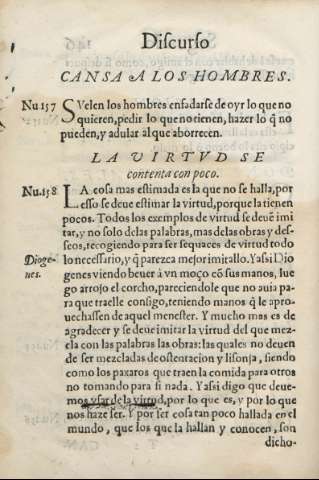 Discurso
CANSA A LOS HOMBRES.
Nu 157 SVelen los hombres enfadarse de oyr lo que no
quieren, pedir lo que no tienen, hazer lo q̃ no
pueden, y adular al que aborrecen.
LA VIRTVD SE
contenta con poco.
Nu. 158 LA cosa mas estimada es la que no se halla, por
esso se deue estimar la virtud, porque la tienen
pocos. Todos los exemplos de virtud se deuẽ imi
tar, y no solo de las palabras, mas de las obras y des-
seos, recogiendo para ser sequaces de virtud todo
Dioge- lo necessario, y q̃ parezca mejor imitallo. Y assi Dio
nes. genes viendo beuer à vn moço cõ sus manos, lue
go arrojo el corcho, pareciendole que no auia pa
ra que traelle consigo, teniendo manos q̃ le apro-
uechassen de aquel menester. Y mucho mas es de
agradecer y se deue imitar la virtud del que mez-
cla con las palabras las obras: las quales no deuen
de ser mezcladas de ostentacion y lisonja, siendo
como los paxaros que traen la comida para otros
no tomando para si nada. Y assi digo que deue-
mos vsar de la virtud, por lo que es, y por lo que
nos haze ser. Y por ser cosa tan poco hallada en el
mundo, que los que la hallan y conocen, son
dicho-